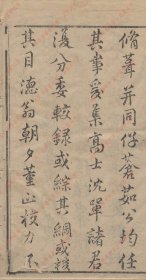 脩葺并同仔蒼茹公均任
其事爰集高士沈單諸君
淩分委較録或綜其綱或設
其目德翁朝夕董正校力不